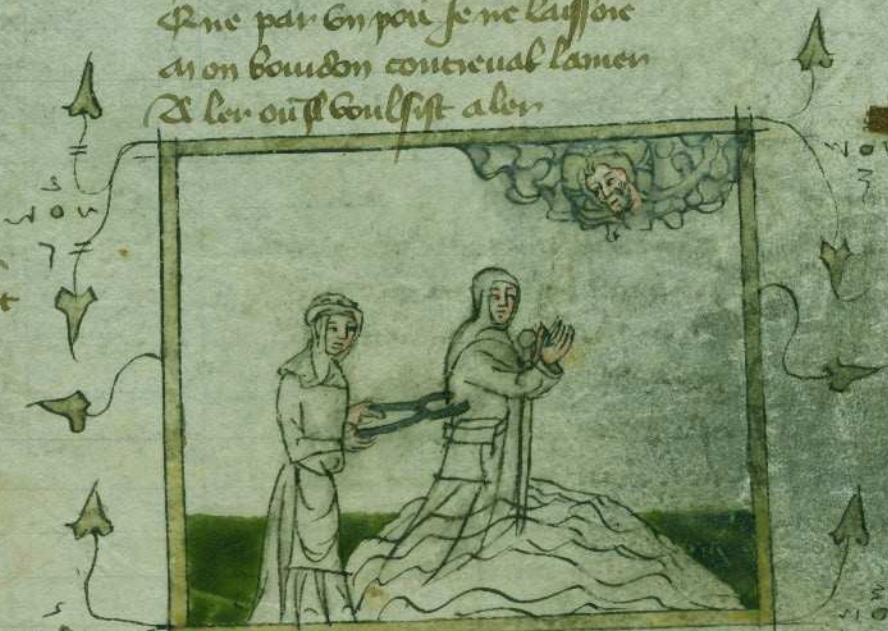 Que par un pou je ne laissoie
Mon bourdon contreval lamer
A ler ou il voulsist aler